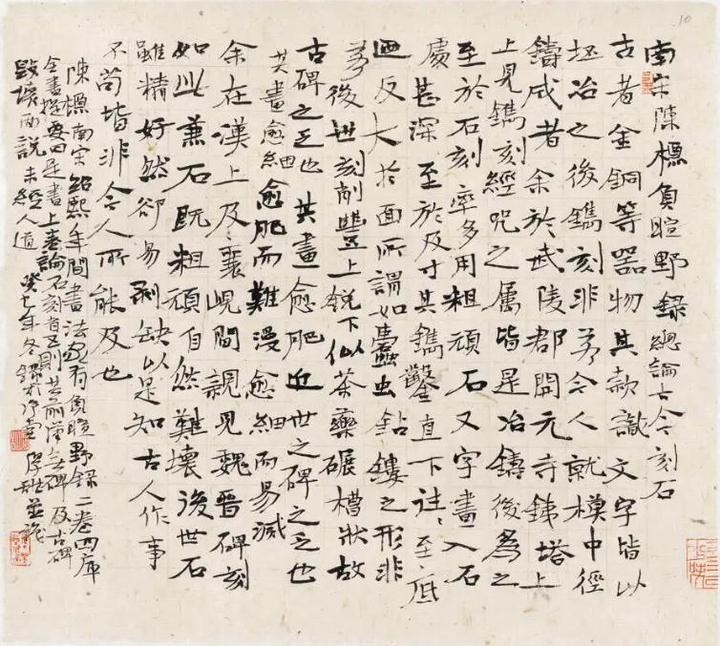 10
南宋陳槱負暄野錄總論古今刻石
古者金銅等器物其款識文字皆以
坯冶之後鐫刻非若今人就模中徑
鑄成者余於武陵郡開元寺鉄塔上
上見鐫刻經咒之属皆是冶鑄後為之
至於石刻率多用粗頑石又字畫入石
處甚深至於及寸其鐫鑿直下往〻至底
迺反大於面所謂如蠹虫鉆鏤之形非
若後世刻削豐上銳下似茶藥碾槽狀故
古碑之乏也其畫愈肥近世之碑之乏也
其畫愈細愈肥而難漫愈細而易滅
余在漢上及襄峴間親見魏晉碑刻
如此兼石既粗頑自然難壞後世石
雖精好然卻易剥缺以是知古人作事
不苟皆非今人所能及也
陳槱南宋紹熙年間書法家有負暄野録二卷四庫
全書提要曰是書上卷論石刻有五則其前漢無碑及古碑
毀壞兩説未經人道 癸巳年冬録於 並識